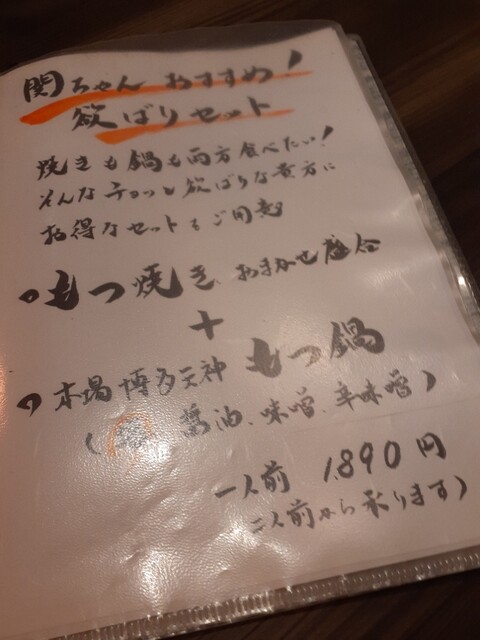 関ちゃんおすすめ!
欲ばりセット
焼きも鍋も両方食べたい!
そんなチョッと欲ばりな貴方に
お得なセットをご用意
もつ焼きおまかせ盛合
+
本場博多天神もつ鍋
( 醤油、味噌、辛味噌)
一人前 1,890円
二人前から承ります)